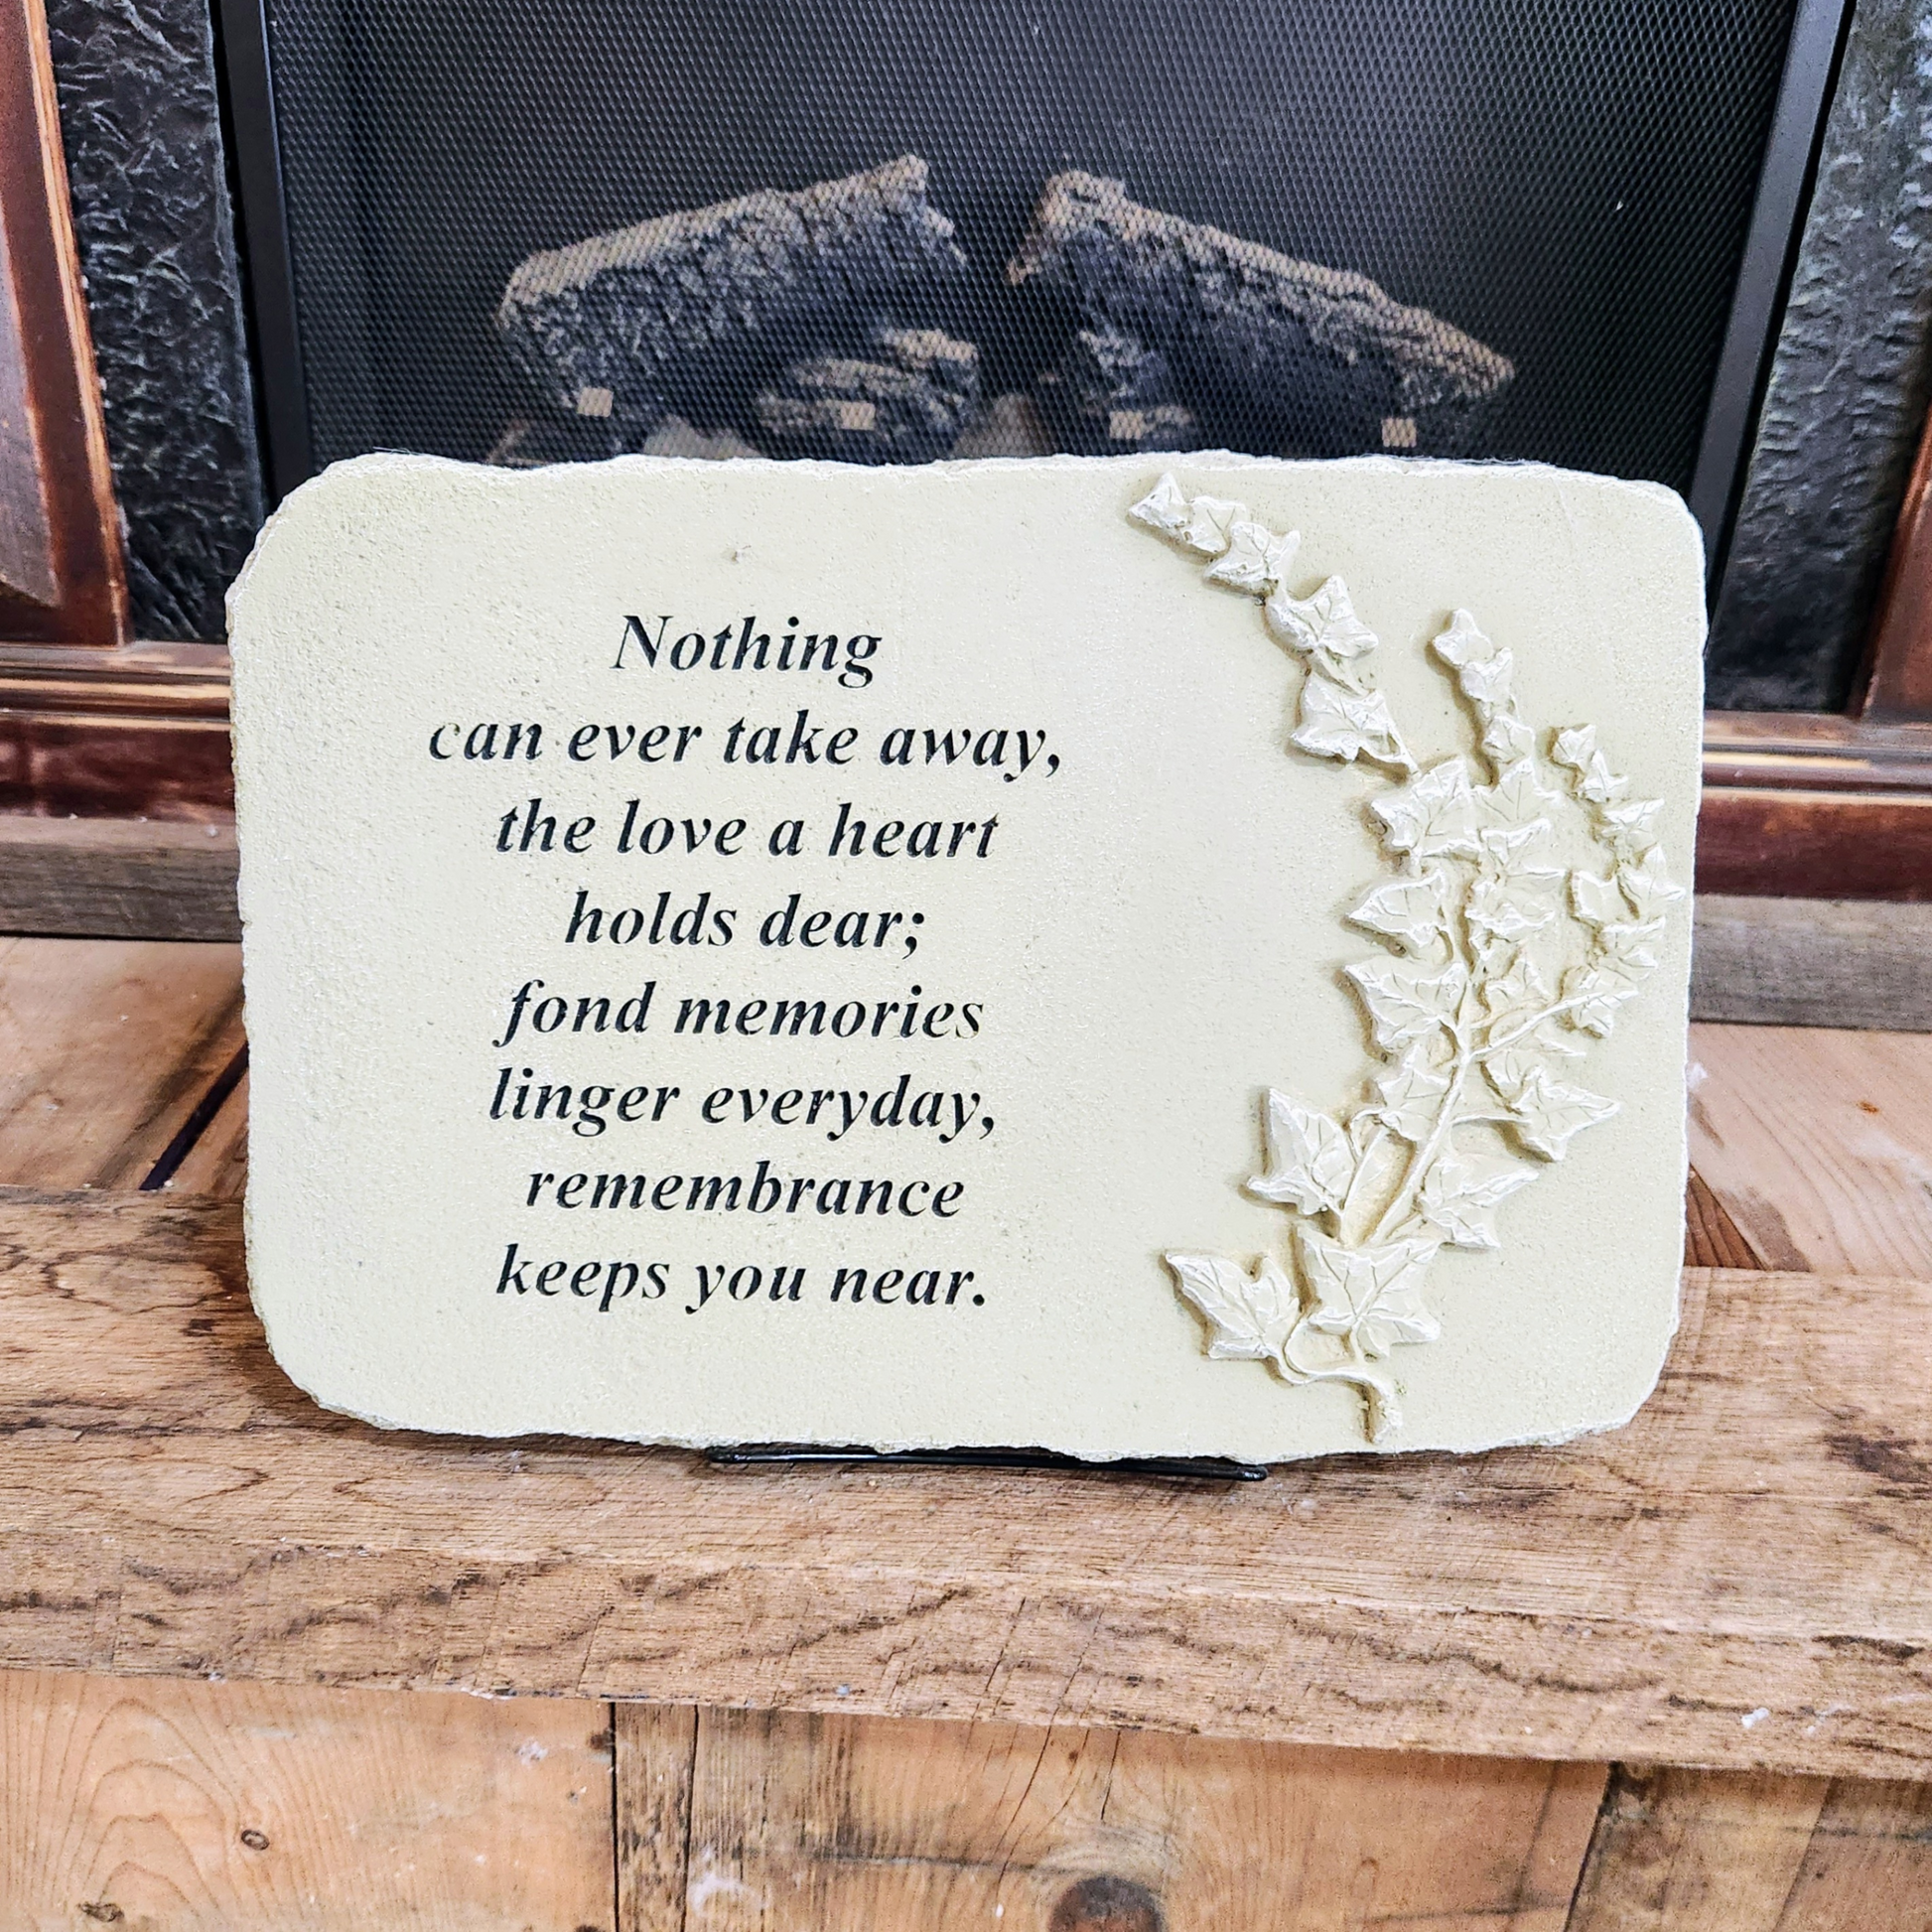 Nothing
can ever take away,
the love a heart
holds dear;
fond memories
linger everyday,
remembrance
keeps you near.